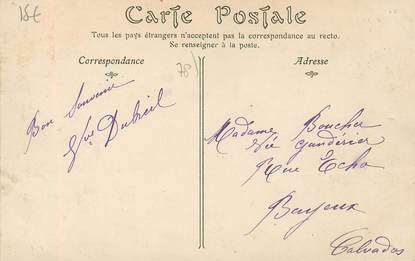 15€
Carte Postale
Tous les pays étrangers n'acceptent pas la correspondance au recto.
Se renseigner à la poste.
Correspondance
78
Adresse
Bon Souvenir
Dubreil
Madame Boucher
Née
Rue Echo
Bayeux
Calvados